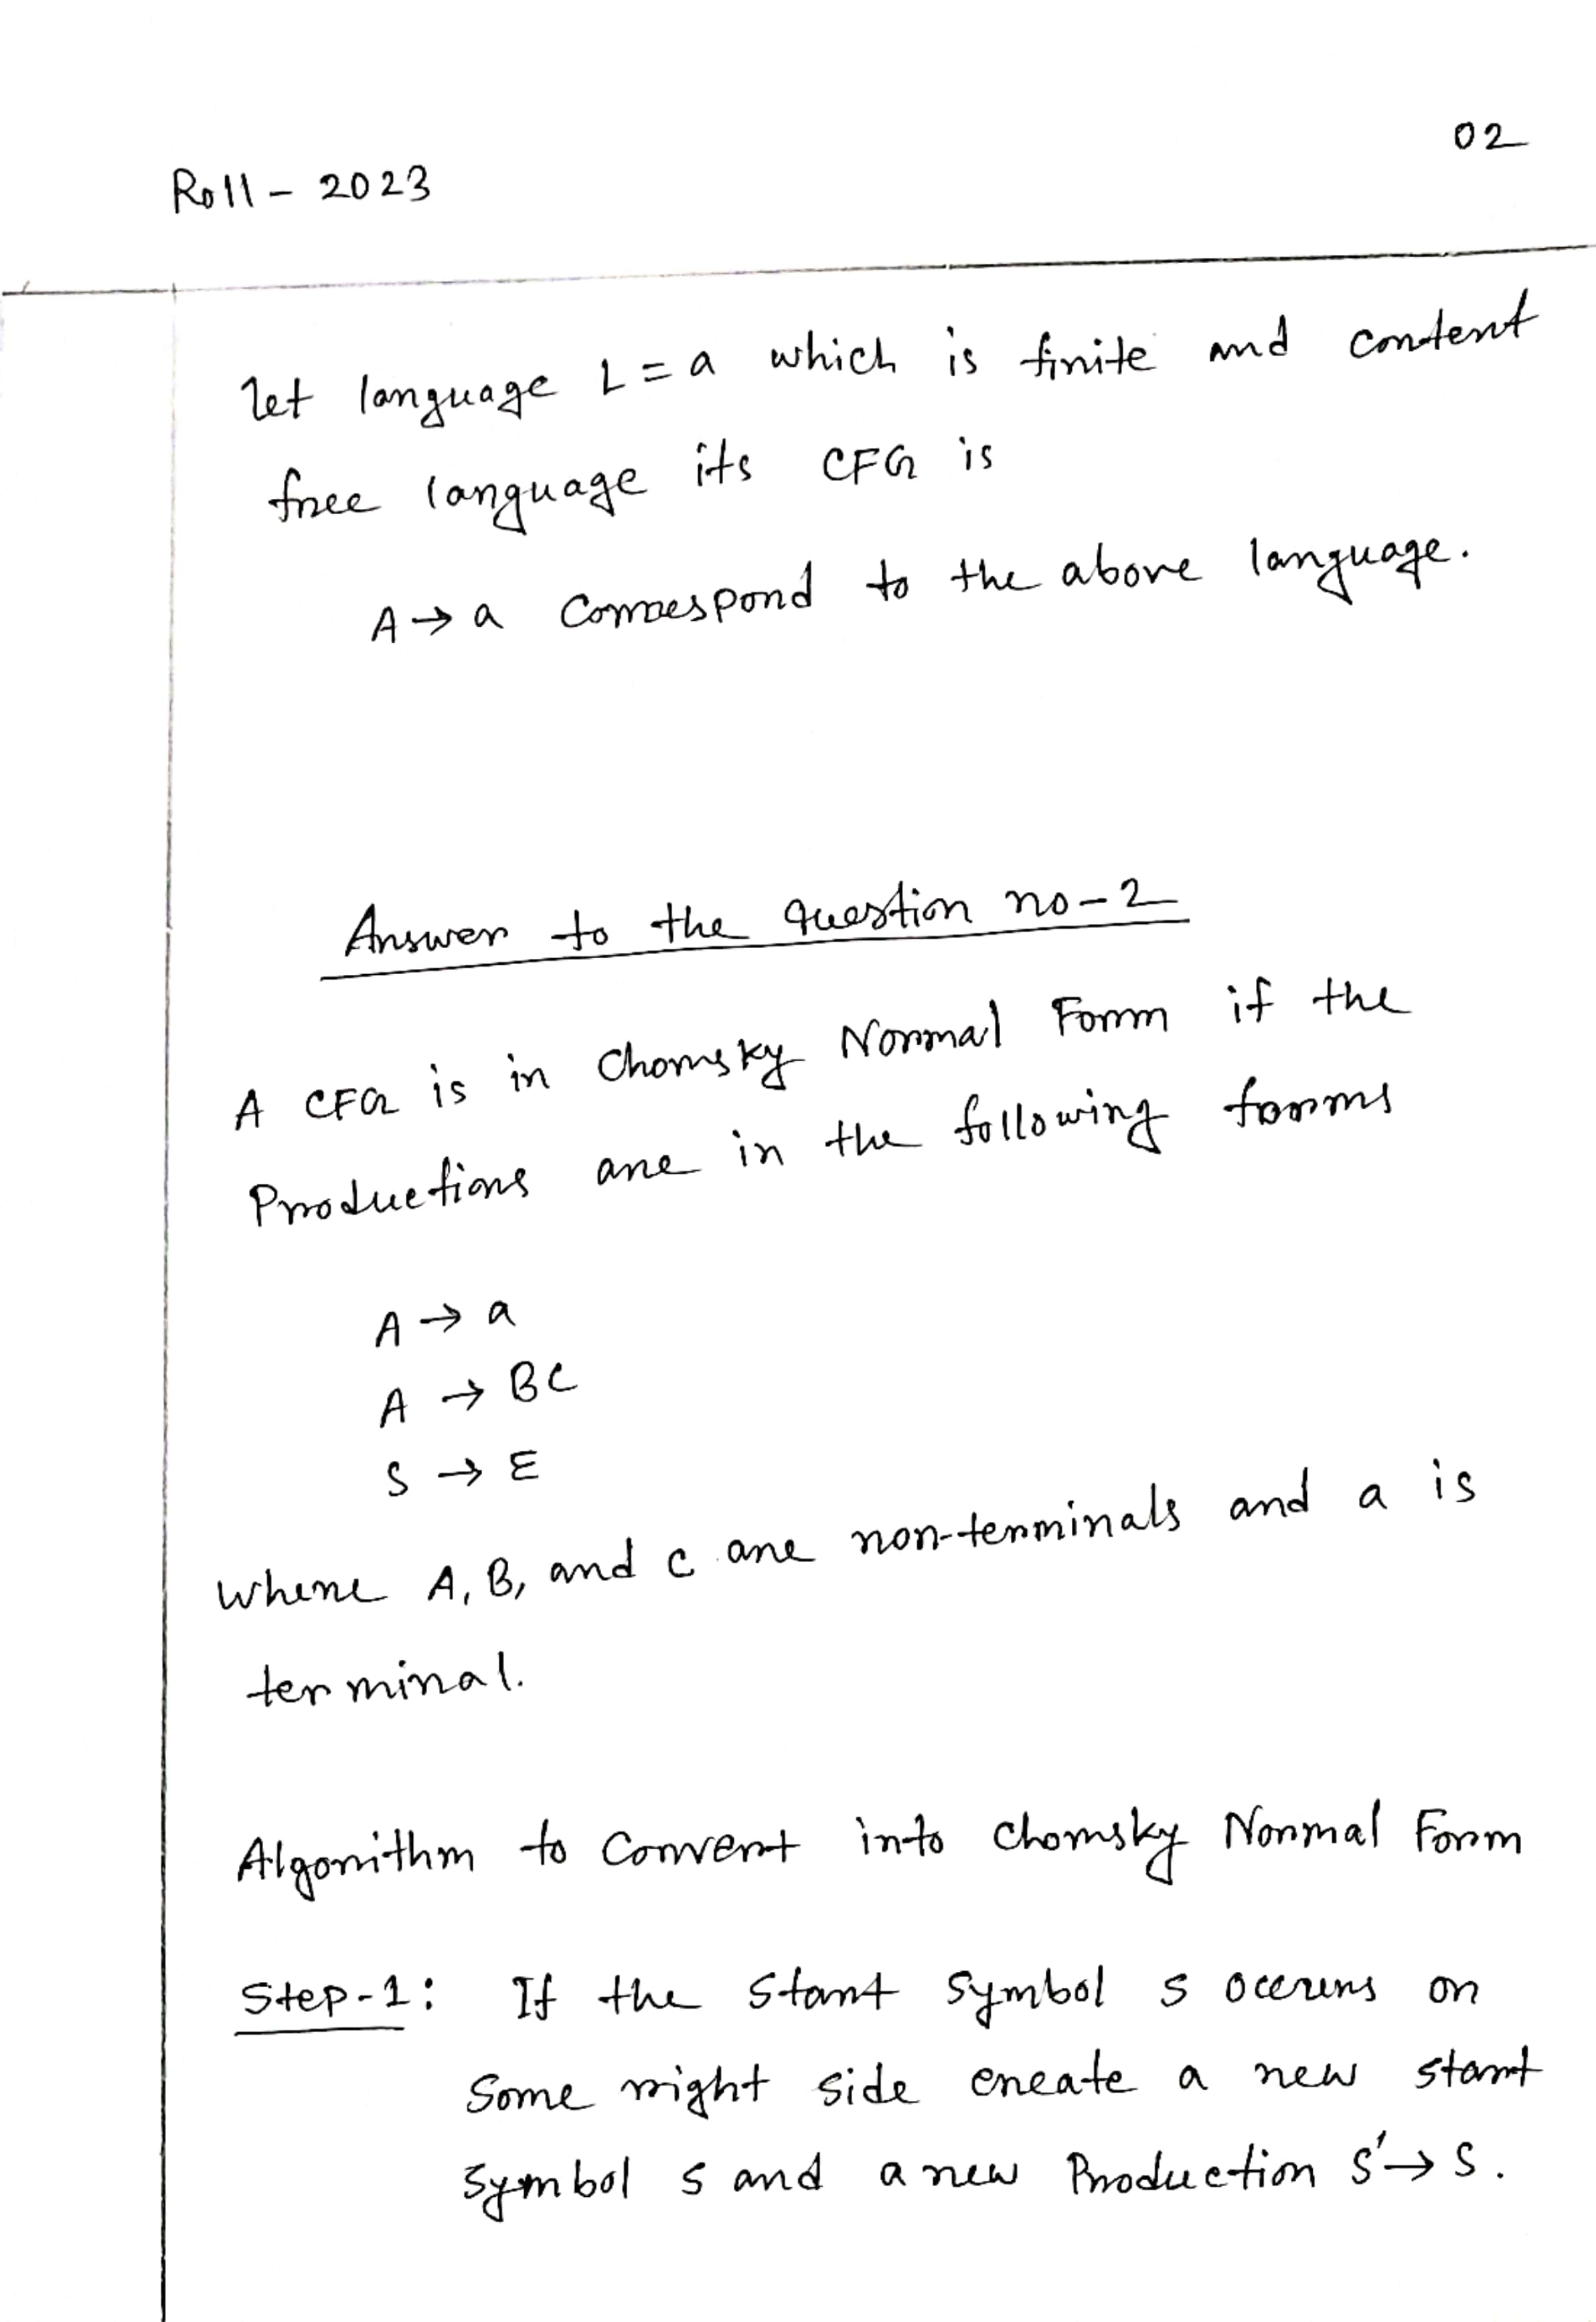 02
Roll - 2023
let language L = a which is finite and content
free language its CFG is
A → a Correspond to the above language.
Answer to the question no-2
A CFG is in Chomsky Normal Form if the
Productions are in the following forms
A → a
A → BC
S → ε
Where A, B, and C are non-terminals and a is
terminal.
Algorithm to Convert into Chomsky Normal Form
Step-1: If the start symbol s occurs on
some right side create a new start
symbol s and a new Production S' → S.